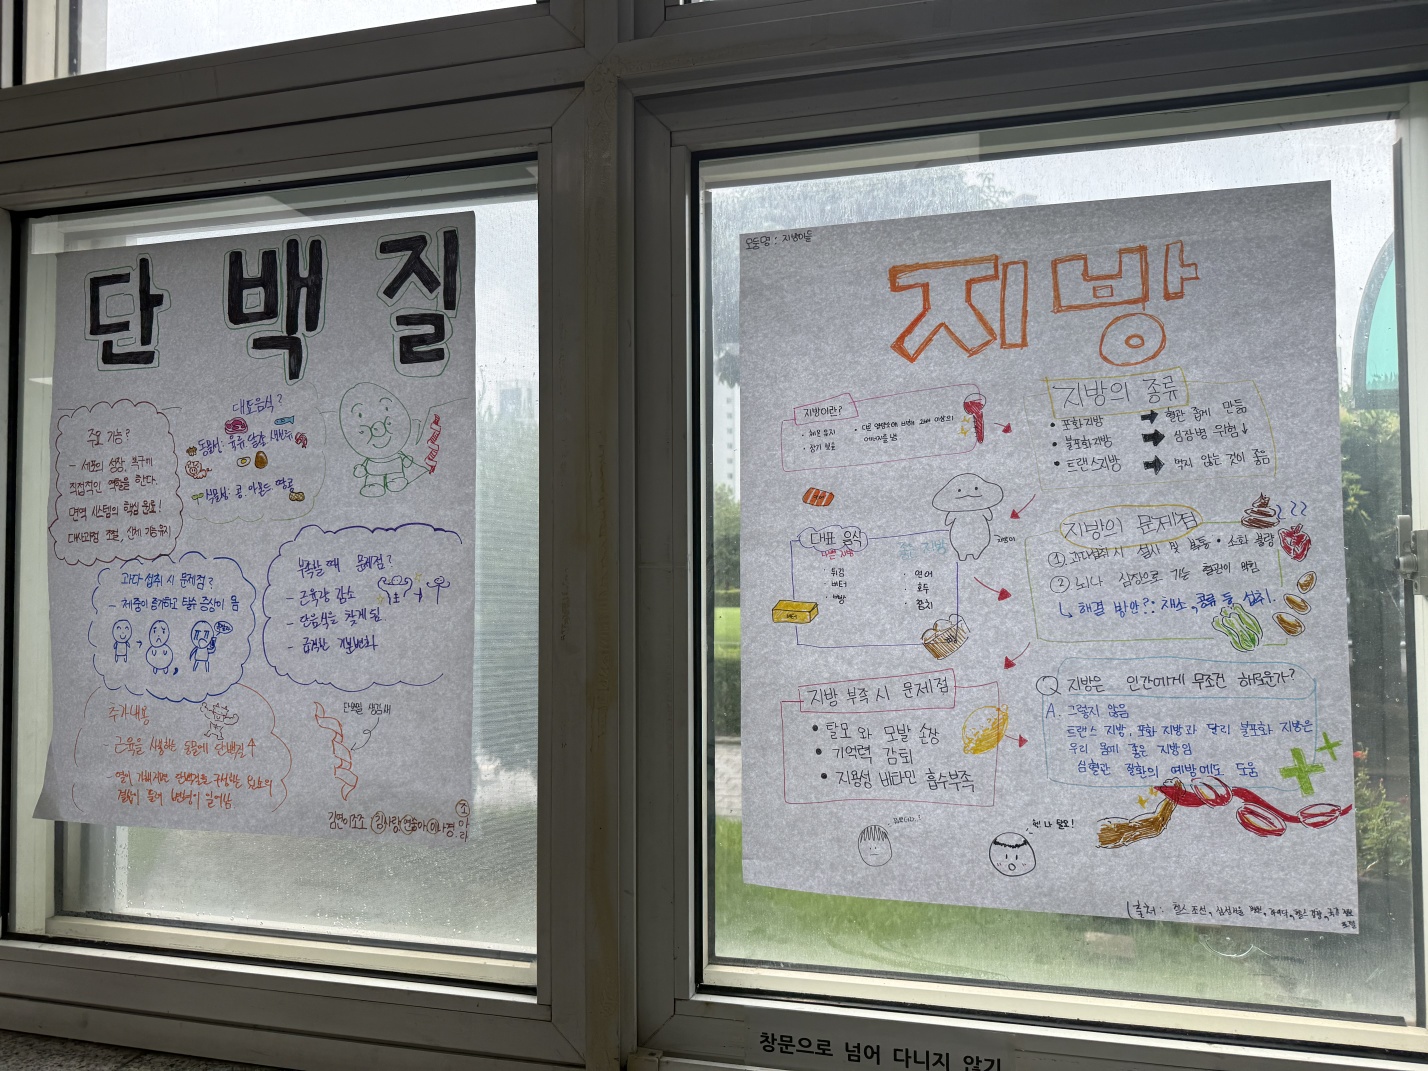 단백질
주요 기능?
- 세포의 성장, 복구에
직접적인 역할을 한다.
면역 시스템의 핵심 원료!
대사과정 조절, 신체 기능 유지
대표음식?
동물성: 육류 달걀 생선
식물성: 콩, 아몬드 땅콩
과다 섭취 시 문제점?
- 체중이 증가하고 탈수 증상이 옴
부족할 때 문제점?
- 근육량 감소
- 단음식을 찾게 됨
- 급격한 기분변화
추가내용
- 근육을 사용하는 동물에 단백질↑
단백질 생김새
모둠명 : 지방이들
지방
지방이란?
• 체온 유지
• 장기 보호
• 다른 영양소에 비해 2배 이상의
에너지를 냄
지방의 종류
• 포화지방 → 혈관 좁게 만듦
• 불포화지방 → 심장병 위험↓
• 트랜스지방 → 먹지 않는 것이 좋음
지방이
대표 음식
나쁜 지방
튀김
버터
좋은 지방
• 연어
• 호두
• 참치
지방의 문제점
① 과다섭취 시 설사 및 복통 • 소화 불량
② 뇌나 심장으로 가는 혈관이 막힘
↳ 해결 방안?: 채소, 콩류 등 섭취.
지방 부족 시 문제점
• 탈모와 모발 손상
• 기억력 감퇴
• 지용성 비타민 흡수부족
Q 지방은 인간에게 무조건 해로운가?
A. 그렇지 않음
트랜스 지방, 포화 지방과 달리 불포화 지방은
우리 몸에 좋은 지방임
심혈관 질환의 예방에도 도움
헉! 나 탈모!
출처 : 헬스조선,
창문으로 넘어 다니지 않기